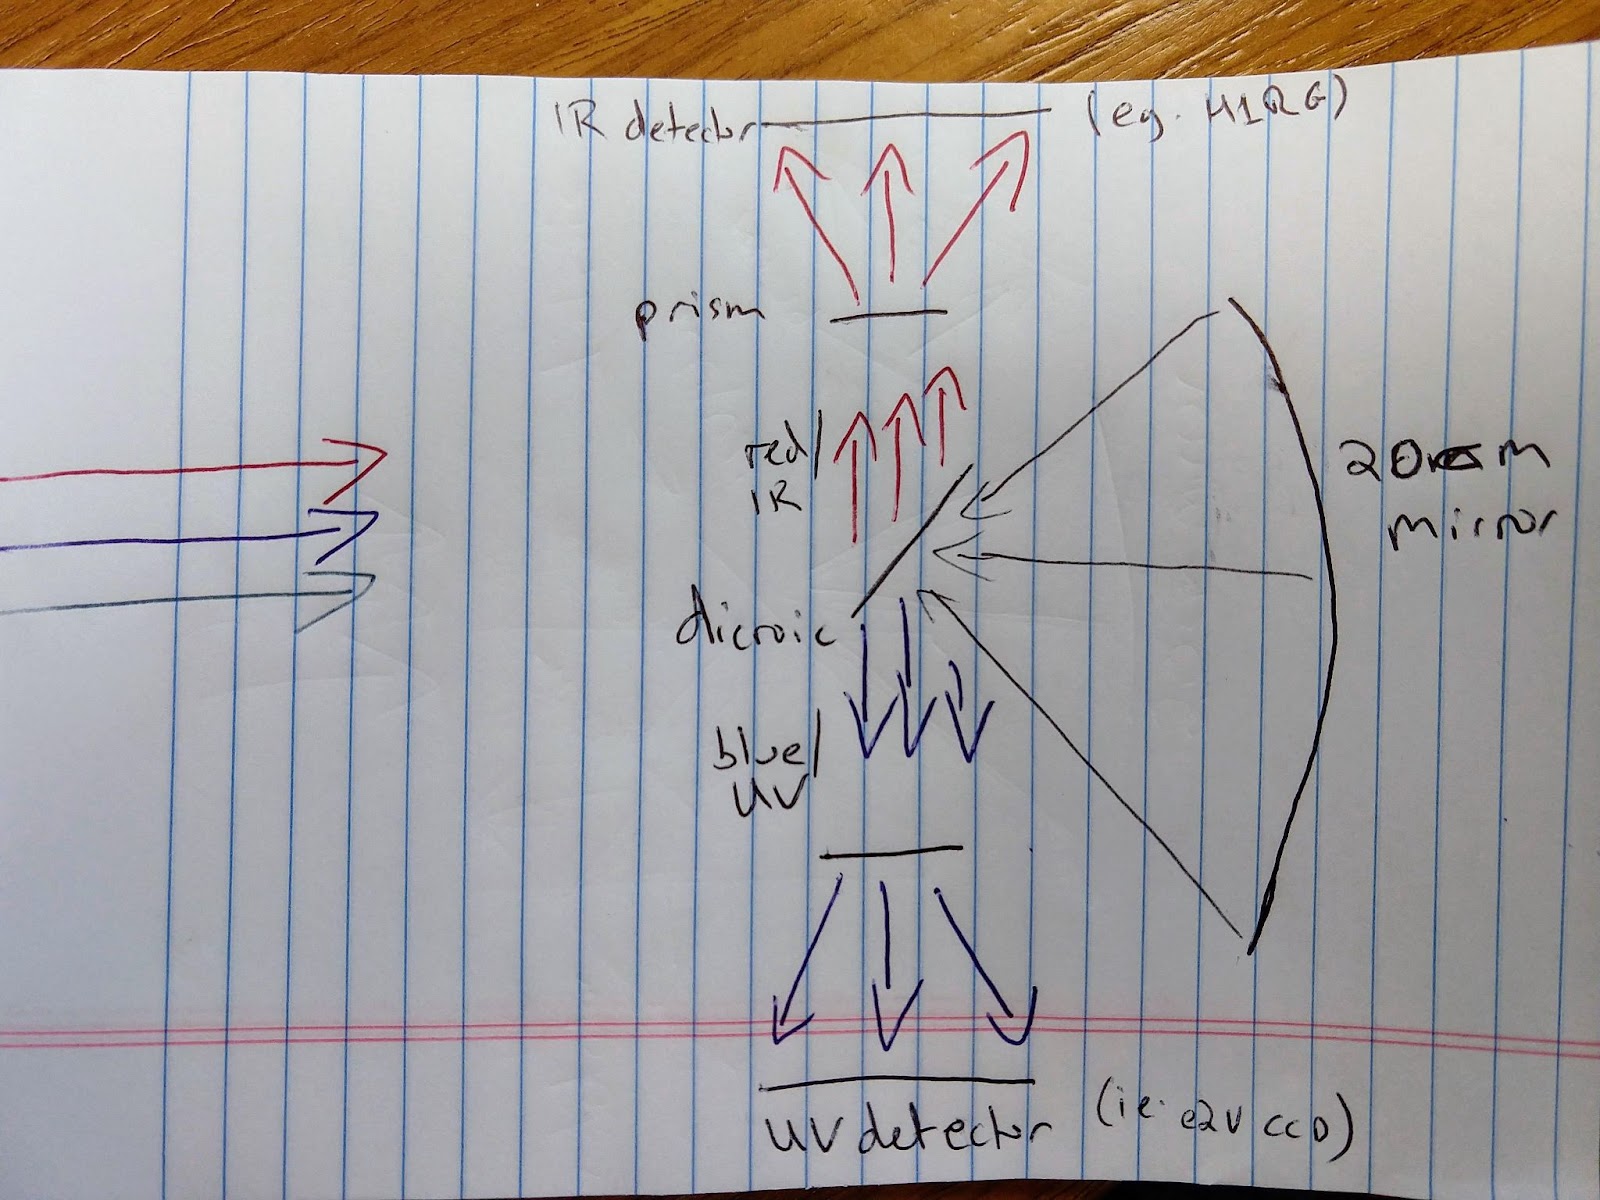 IR detector (eg. H1RG)
prism
red/
IR
20 m
mirror
dicroic
blue/
UV
UV detector (ie. e2v CCD)